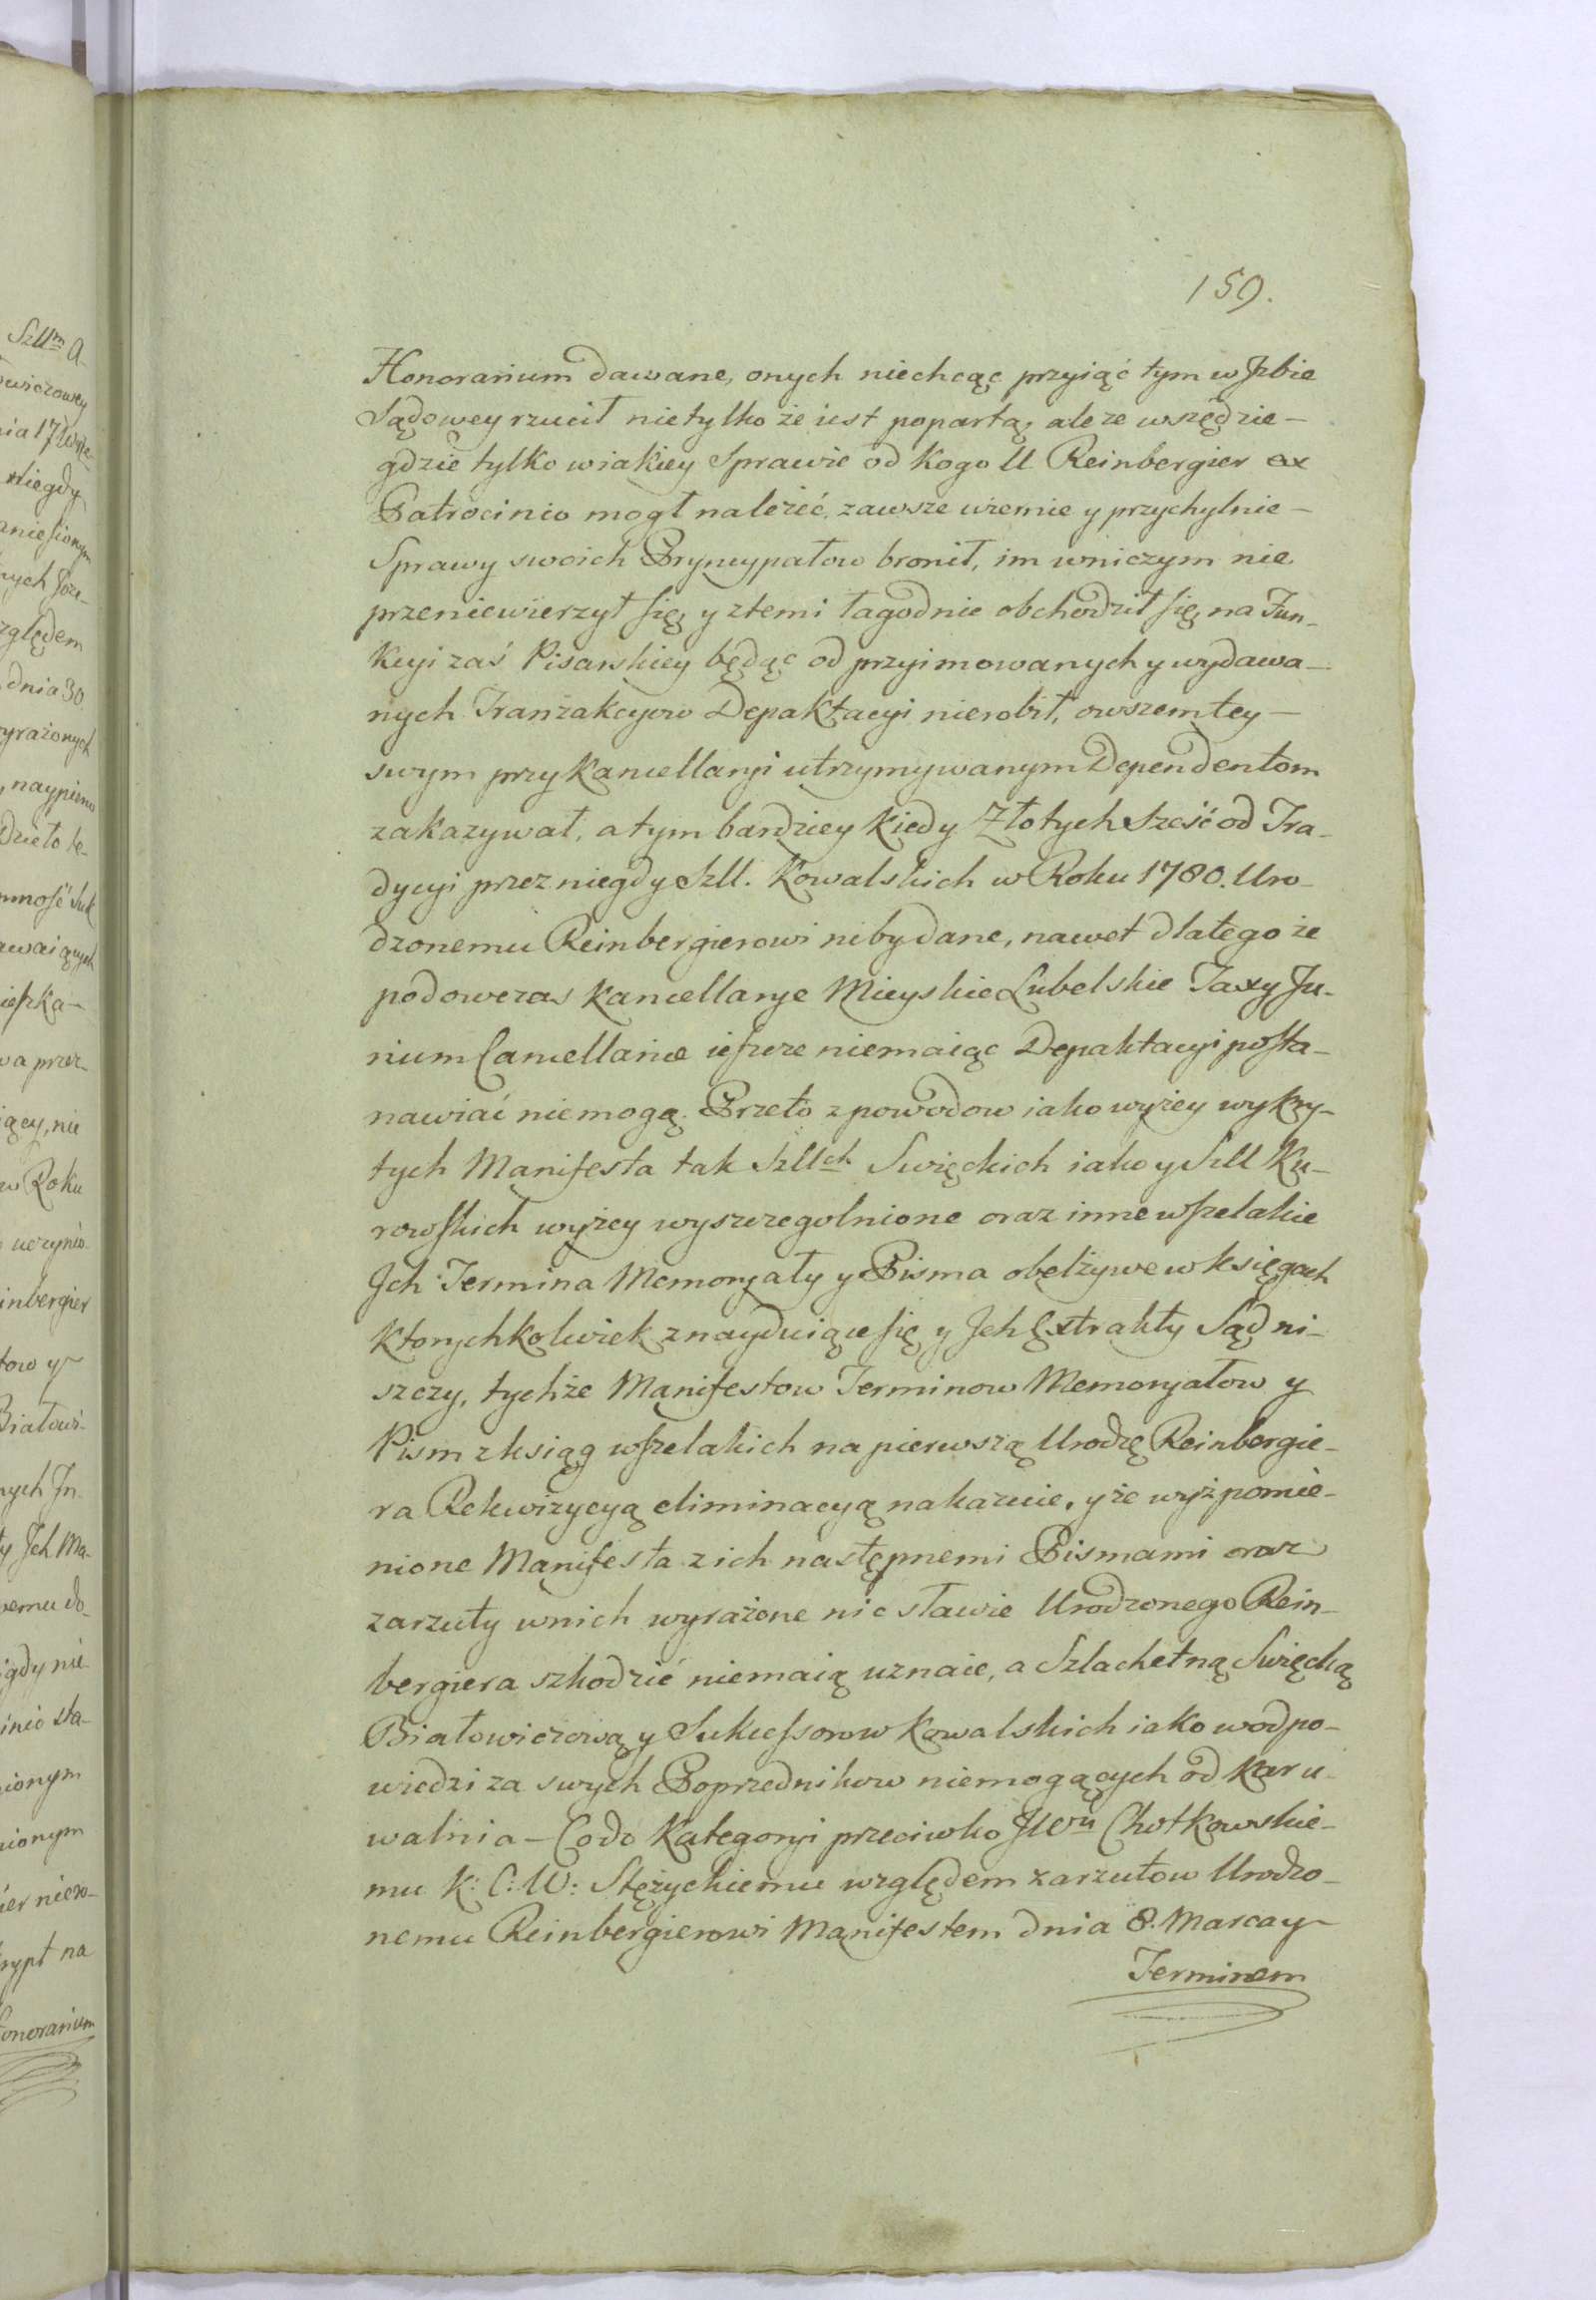 159.
Honorarium dawane, onych niechcąc przyiąć tym w Jzbie
Sądowey rzucił nietylko że iest popartą, ale ze wszędzie –
gdzie tylko wiakiey Sprawie od kogo U Reinbergier ex
Patrocinio mogł należić, zawsze wiernie y przychylnie –
Sprawy swoich Pryncypałow bronił, im wniczym nie
przeniewierzył się, y ztemi łagodnie obchodził się, na Fun-
kcyi zaś Pisarskiey będąc od przyimowanych y wydawa-
nych Tranzakcyow Depaktacyi nierobił, owszem tey –
swym przy Kancellaryi utrzymywanym Dependentom
zakazywał, a tym bardziey kiedy Złotych Sześć od Tra-
dycyi przez niegdy Szll. Kowalskich w Roku 1780. Uro-
dzonemu Reinbergierowi niby dane, nawet dlatego że
podowczas Kancellarye Mieyskie Lubelskie Taxy Ju-
rium Cancellariæ ieszcze niemaiąc Depaktacyi posta-
nawiać niemogą. Przeto z powodow iako wyżey wykry-
tych Manifesta tak Szllch Swięckich iako y Szll Ku-
rowskich wyżey wyszczegolnione oraz inne wszelakie
Jch Termina Memoryały y Pisma obelżywe w księgach
ktorychkolwiek znayduiące się y Jch Extrakty Sąd ni-
szczy, tychże Manifestow Terminow Memoryałow y
Pism z ksiąg wszelakich na pierwszą Urodzę Reinbergie-
ra Rekwizycyą eliminacyą nakazuie, y że wyż pomie-
nione Manifesta z ich następnemi Pismami oraz
zarzuty wnich wyrażone nic sławie Urodzonego Rein-
bergiera szkodzić niemaią uznaie, a Szlachetną Swięcką
Białowiczową y Sukcessorow Kowalskich iako w odpo-
wiedzi za swych Poprzednikow niemogących od kar u-
walnia – Co do Kategoryi przeciwko JWu Chotkowskie-
mu K: C: W: Stężyckiemu względem zarzutow Urodzo-
nemu Reinbergierowi Manifestem dnia 8. Marca y
Terminem